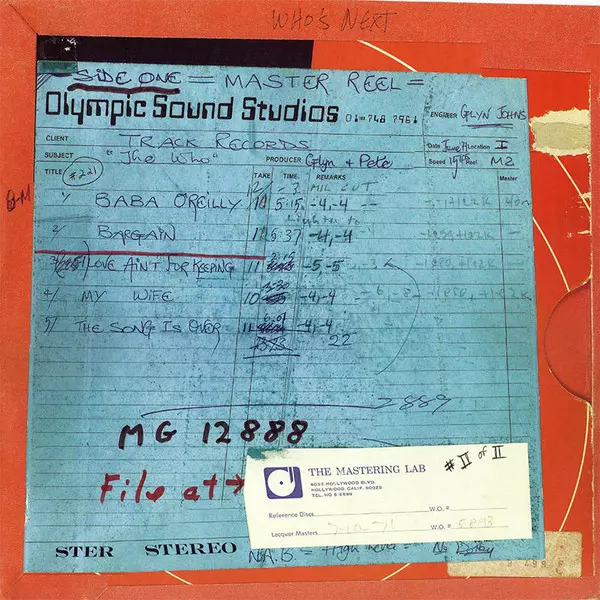 WHO'S NEXT
SIDE ONE = MASTER REEL =
Olympic Sound Studios 01-748 7961
ENGINEER GLYN JOHNS
CLIENT TRACK RECORDS
Date June 71 Location I
SUBJECT "The Who" PRODUCER Glyn + Pete
Speed 15 Reel M2
TITLE #221 TAKE TIME. REMARKS Master
1/ BABA O'REILLY 5:15 -4,-4
Lighter to
2/ BARGAIN 11 5:37 -4,-4
3/ LOVE AIN'T FOR KEEPING 11 -5,-5
4/ MY WIFE 10 -4,-4
5/ THE SONG IS OVER 11 -4,-4
22
2889
MG 12888
File at →
THE MASTERING LAB # II of II
6033 HOLLYWOOD BLVD.
HOLLYWOOD, CALIF. 90028
Reference Discs W.O. #
Lacquer Masters 7-10-71 W.O. # 5893
STER STEREO N.A.B = High Level = No Dolby